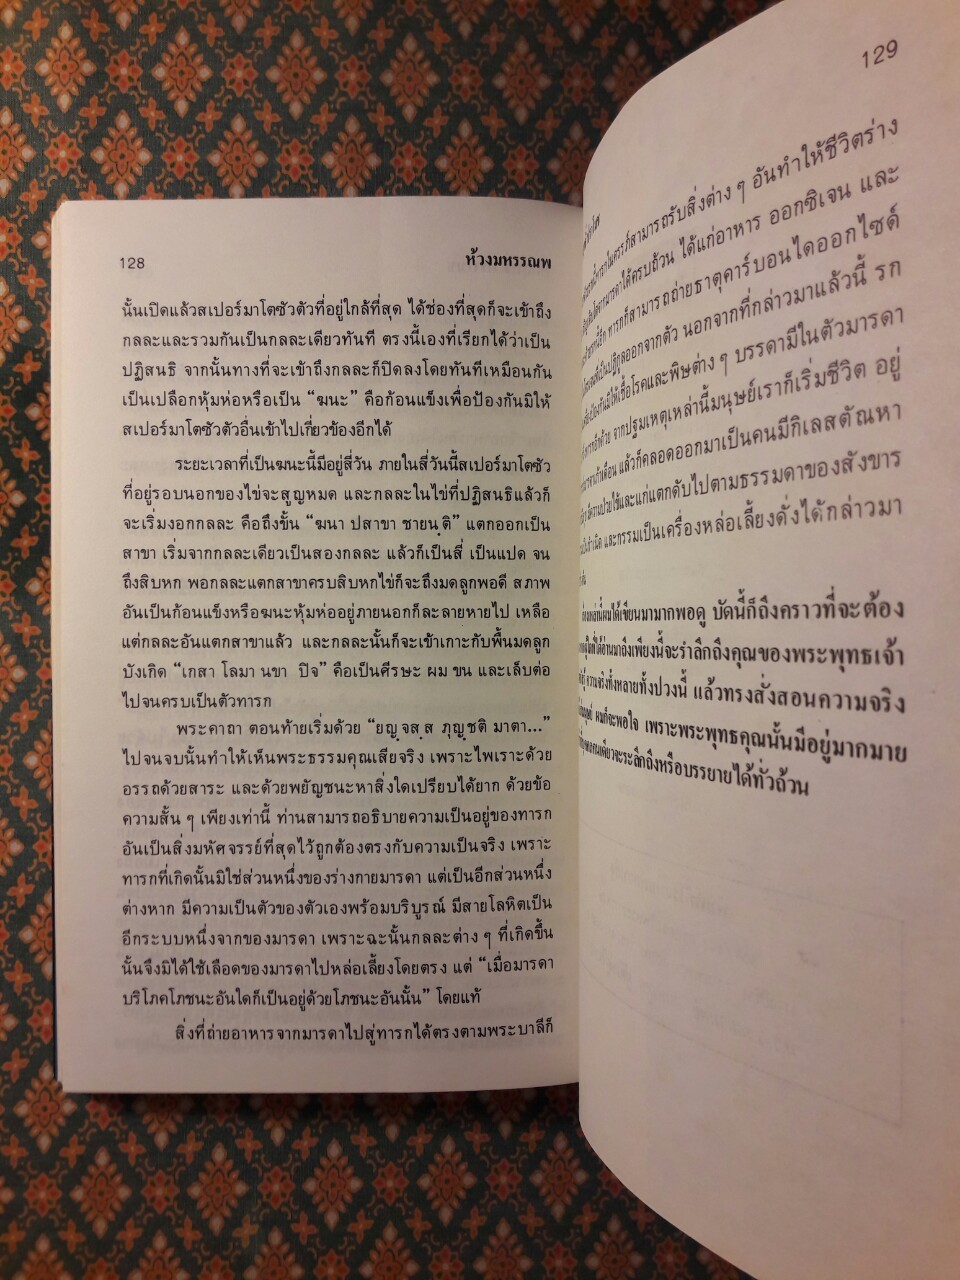 128
ห้วงมหรรณพ
นั้นเปิดแล้วสเปอร์มาโตซัวตัวที่อยู่ใกล้ที่สุด ได้ช่องที่สุดก็จะเข้าถึง
กลละและรวมกันเป็นกลละเดียวทันที ตรงนี้เองที่เรียกได้ว่าเป็น
ปฏิสนธิ จากนั้นทางที่จะเข้าถึงกลละก็ปิดลงโดยทันทีเหมือนกัน
เป็นเปลือกหุ้มห่อหรือเป็น “ฆนะ” คือก้อนแข็งเพื่อป้องกันมิให้
สเปอร์มาโตซัวตัวอื่นเข้าไปเกี่ยวข้องอีกได้
ระยะเวลาที่เป็นฆนะนี้มีอยู่สี่วัน ภายในสี่วันนี้สเปอร์มาโตซัว
ที่อยู่รอบนอกของไข่จะสูญหมด และกลละในไข่ที่ปฏิสนธิแล้วก็
จะเริ่มงอกกลละ คือถึงขั้น “ฆนา ปสาขา ชายนฺติ” แตกออกเป็น
สาขา เริ่มจากกลละเดียวเป็นสองกลละ แล้วก็เป็นสี่ เป็นแปด จน
ถึงสิบหก พอกลละแตกสาขาครบสิบหกไข่ก็จะถึงมดลูกพอดี สภาพ
อันเป็นก้อนแข็งหรือฆนะหุ้มห่ออยู่ภายนอกก็ละลายหายไป เหลือ
แต่กลละอันแตกสาขาแล้ว และกลละนั้นก็จะเข้าเกาะกับพื้นมดลูก
บังเกิด “เกสา โลมา นขา ปิจ” คือเป็นศีรษะ ผม ขน และเล็บต่อ
ไปจนครบเป็นตัวทารก
พระคาถา ตอนท้ายเริ่มด้วย “ยญฺจสฺส ภุญฺชติ มาตา...”
ไปจนจบนั้นทำให้เห็นพระธรรมคุณเสียจริง เพราะไพเราะด้วย
อรรถด้วยสาระ และด้วยพยัญชนะหาสิ่งใดเปรียบได้ยาก ด้วยข้อ
ความสั้น ๆ เพียงเท่านี้ ท่านสามารถอธิบายความเป็นอยู่ของทารก
อันเป็นสิ่งมหัศจรรย์ที่สุดไว้ถูกต้องตรงกับความเป็นจริง เพราะ
ทารกที่เกิดนั้นมิใช่ส่วนหนึ่งของร่างกายมารดา แต่เป็นอีกส่วนหนึ่ง
ต่างหาก มีความเป็นตัวของตัวเองพร้อมบริบูรณ์ มีสายโลหิตเป็น
อีกระบบหนึ่งจากของมารดา เพราะฉะนั้นกลละต่าง ๆ ที่เกิดขึ้น
นั้นจึงมิได้ใช้เลือดของมารดาไปหล่อเลี้ยงโดยตรง แต่ “เมื่อมารดา
บริโภคโภชนะอันใดก็เป็นอยู่ด้วยโภชนะอันนั้น” โดยแท้
สิ่งที่ถ่ายอาหารจากมารดาไปสู่ทารกได้ตรงตามพระบาลีก็
129
สามารถรับสิ่งต่าง ๆ อันทำให้ชีวิตร่าง
มารดาได้ครบถ้วน ได้แก่อาหาร ออกซิเจน และ
ทารกก็สามารถถ่ายธาตุคาร์บอนไดออกไซด์
ที่เป็นปฏิกูลออกจากตัว นอกจากที่กล่าวมาแล้วนี้ รก
ป้องกันมิให้เชื้อโรคและพิษต่าง ๆ บรรดามีในตัวมารดา
จากปฐมเหตุเหล่านี้มนุษย์เราก็เริ่มชีวิต อยู่
เก้าเดือน แล้วก็คลอดออกมาเป็นคนมีกิเลสตัณหา
มีความป่วยไข้และแก่แตกดับไปตามธรรมดาของสังขาร
และกรรมเป็นเครื่องหล่อเลี้ยงดั่งได้กล่าวมา
ผมได้เขียนมามากพอดู บัดนี้ก็ถึงคราวที่จะต้อง
ได้อ่านมาถึงเพียงนี้จะรำลึกถึงคุณของพระพุทธเจ้า
ความจริงทั้งหลายทั้งปวงนี้ แล้วทรงสั่งสอนความจริง
ผมก็จะพอใจ เพราะพระพุทธคุณนั้นมีอยู่มากมาย
คนเดียวจะระลึกถึงหรือบรรยายได้ทั่วถ้วน